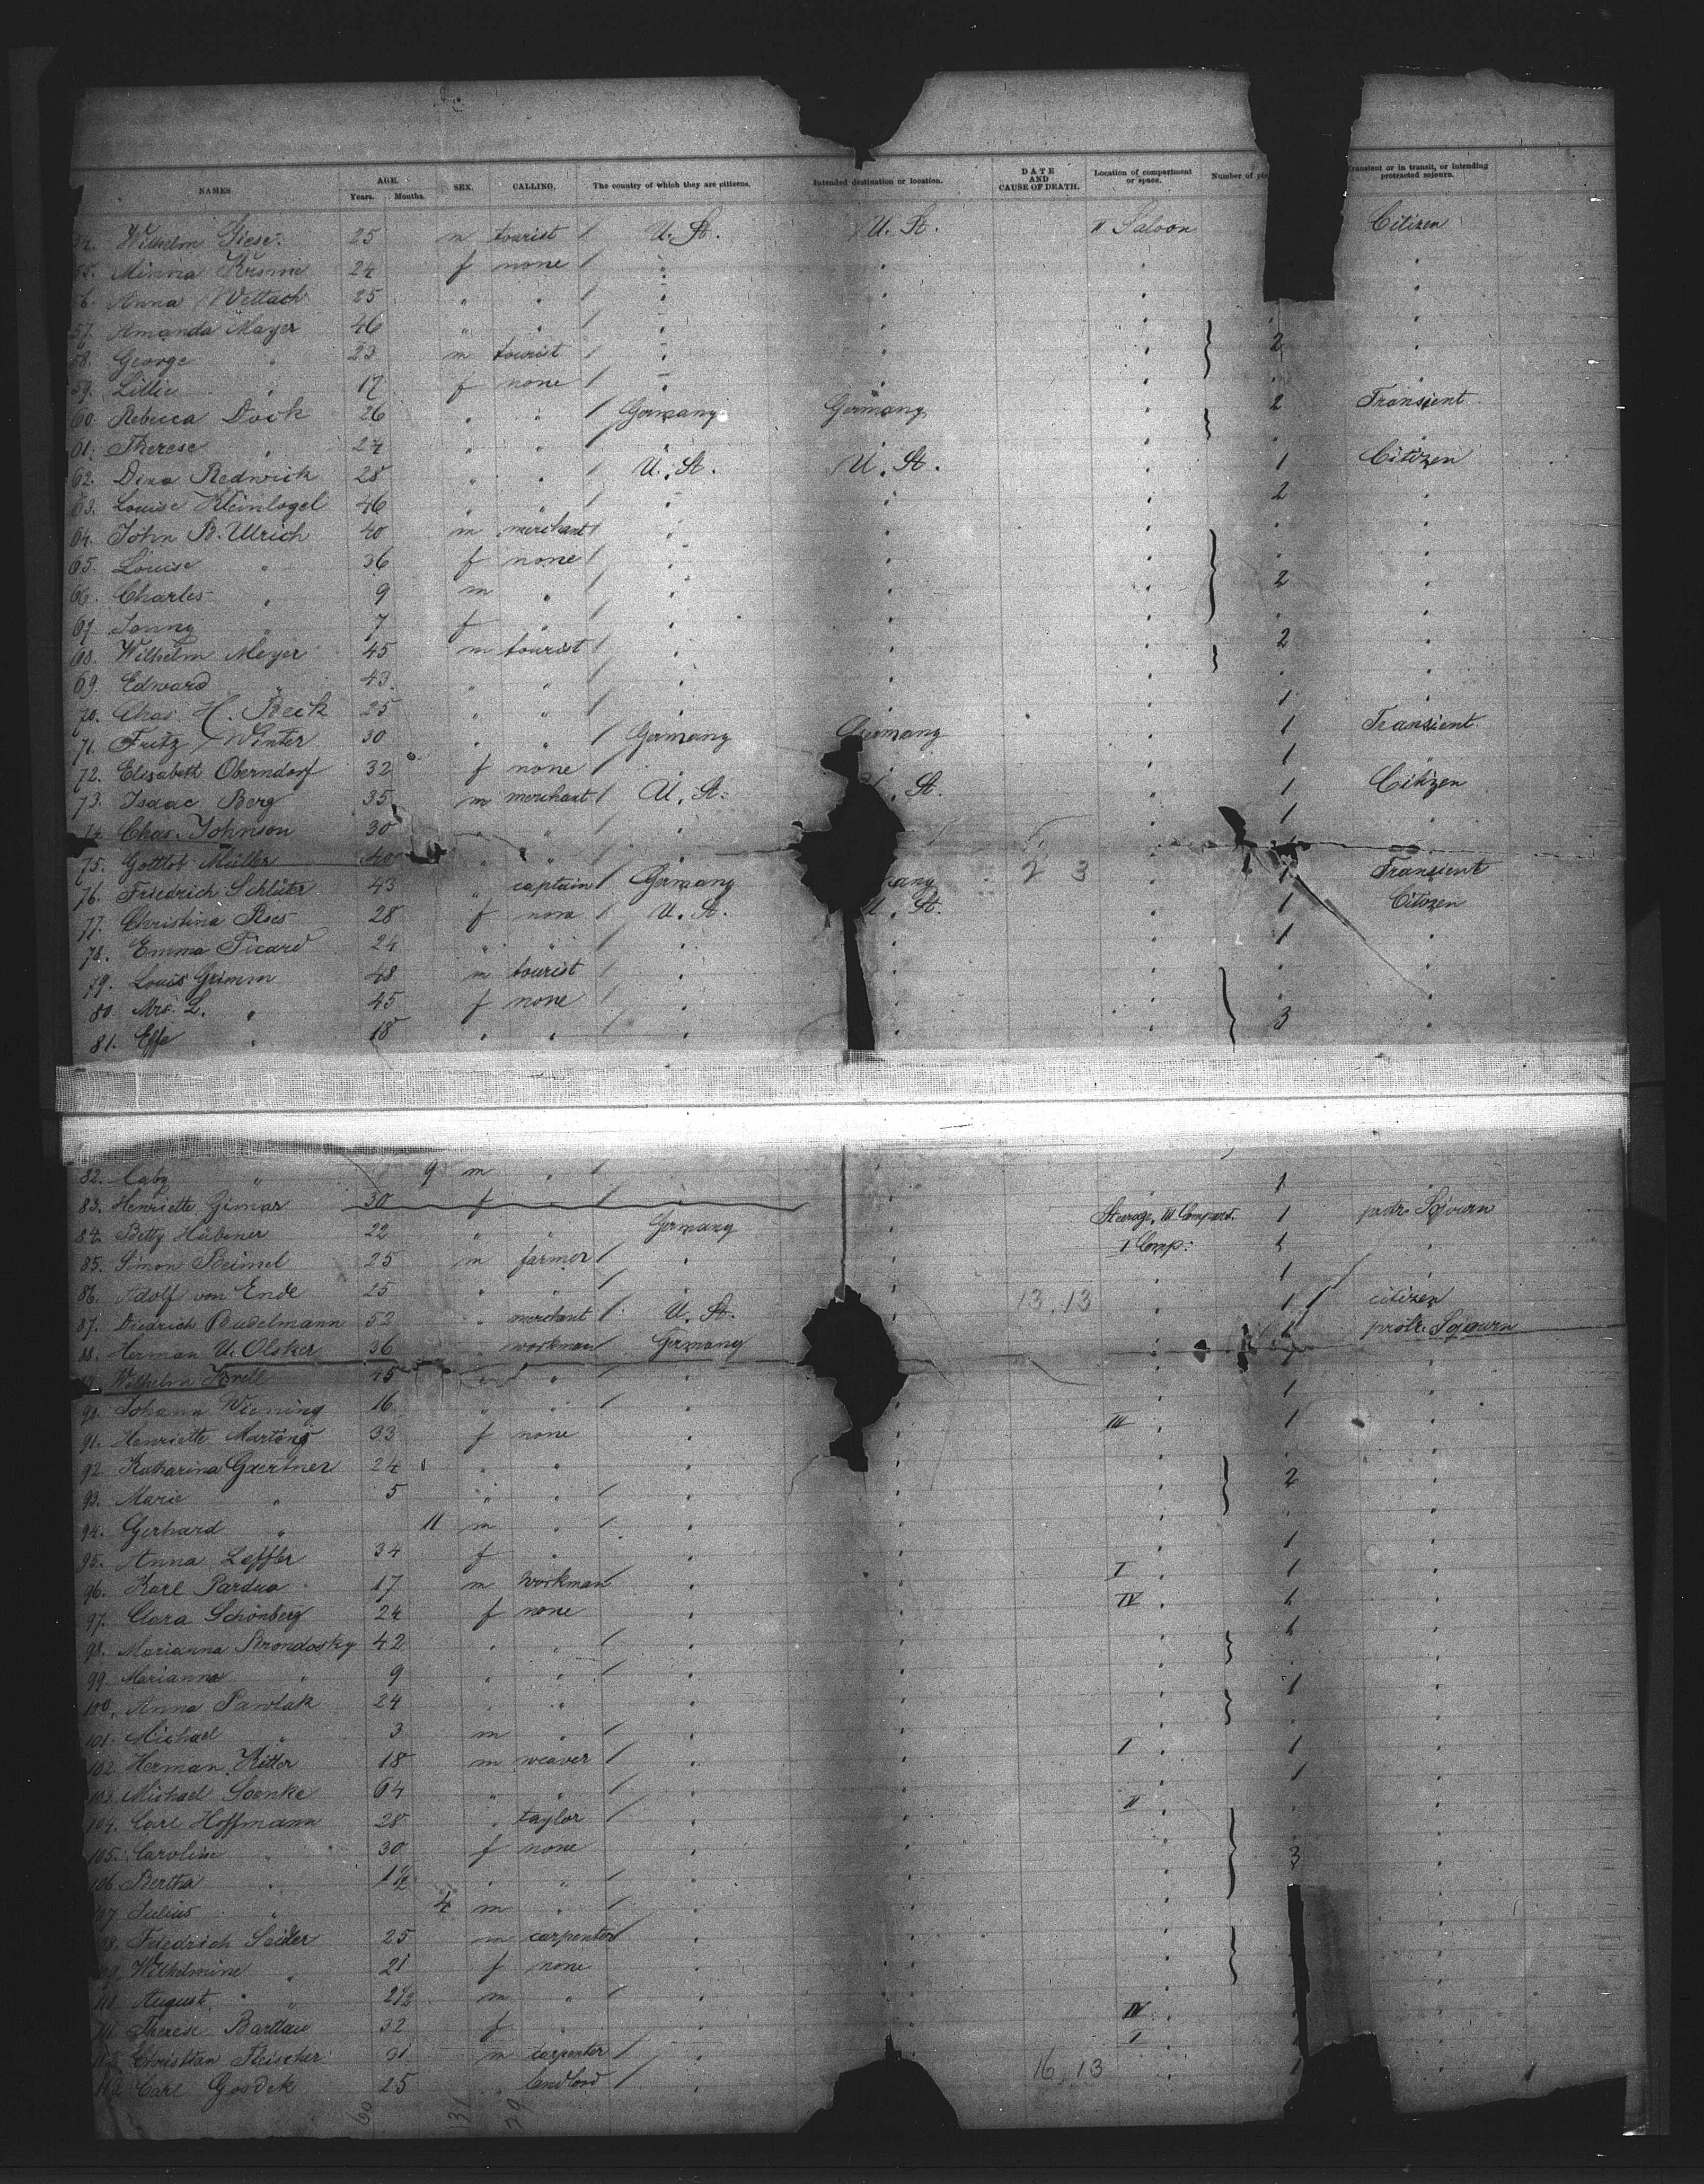 NAMES. AGE. Years. Months. SEX. CALLING. The country of which they are citizens. Intended destination or location. DATE AND CAUSE OF DEATH. Location of compartment or space. Number of transient or in transit, or intending protracted sojourn.
Wilhelm Giese 25 m tourist / U. St. U. St. II Saloon Citizen
Minna 24 f none / " " " "
Anna Wettach 25 " " / " " " "
57. Amanda Mayer 46 " " / " " " "
58. George " 23 m tourist / " " " 2 "
59. Lillie " 17 f none / " " " "
60. Rebecca Dock 26 " " / Germany Germany " 2 Transient
61. Therese " 24 " " / " " " "
62. Dina Redwick 28 " " / U. St. U. St. " 1 Citizen
63. Louise Kleinlogel 46 " " / " " " 2 "
64. John B. Ulrich 40 m merchant / " " " "
65. Louise " 36 f none / " " " "
66. Charles " 9 m " / " " " 2 "
67. " 7 f " / " " " "
68. Wilhelm Meyer 45 m tourist / " " " 2 "
69. Edward " 43 " " / " " " "
70. Chas. H. Beck 25 " " / " " " 1 "
71. Fritz Winter 30 " " / Germany Germany " 1 Transient
72. Elisabeth Oberndorf 32 f none / " " " 1 "
73. Isaac Berg 35 m merchant / U. St. St. " 1 Citizen
74. Chas. Johnson 30 " " / " " 1 "
75. Gottlob Müller 40 " " / " "
76. Friedrich Schlüter 43 " captain / Germany many 2 3 " 1 Transient
77. Christina 28 f none / U. St. U. St. " 1 Citizen
78. Emma Picard 24 " " / " " " 1 "
79. Louis Grimm 48 m tourist / " " " "
80. Mrs. L. " 45 f none / " " " "
81. Effe " 18 " " / " " " 3 "
82. " 9 m " / "
83. Henriette Gimar 30 f " / " " 1 "
84. Betty Hübener 22 " " Germany " Steerage, III Compart. 1 protr. Sojourn
85. Simon Beimel 25 m farmer / " " I Comp: 1 "
86. Adolf von Ende 25 " " / " " " 1 "
87. Diedrich Budelmann 52 " merchant / U. St. 13.13 " 1 citizen
88. Herman U. Olsker 36 " workman Germany " 1 protr. Sojourn
Wilhelm 45 " " / " " "
90. Johann Wiening 16 " " / " " " 1 "
91. Henriette 33 f none " " III " 1 "
92. Katharina Gaertner 24 " " " " " "
93. Marie " 5 " " / " " " 2 "
94. Gerhard " 11 m " / " " " "
95. Anna Leffler 34 f " " " " 1 "
96. Karl Pardua 17 m workman " " I " 1 "
97. Clara Schönberg 24 f none " " IV " 1 "
98. Marianna 42 " " / " " " 1 "
99. Marianna " 9 " " / " " " "
100. Anna Pawlak 24 " " " " " 1 "
101. Michael " 3 m " / " " " "
102. Herman Kitter 18 m weaver / " " I " 1 "
103. Michael Soenke 64 " " / " " " 1 "
104. Carl Hoffmann 28 " taylor / " " II " "
105. Caroline " 30 f none " " " "
106. Bertha " 1½ " " / " " " 3 "
107. Julius " 4 m " / " " " "
108. Friedrich 25 m carpenter / " " " "
109. Wilhelmine " 21 f none " " " "
110. August " 2½ m " / " " " "
111. Therese 32 f " " " IV " "
112. Christian Fleischer 31 m carpenter / " I " "
Carl Gosdek 25 " landlord / " 16 13 " 1
60 31 79